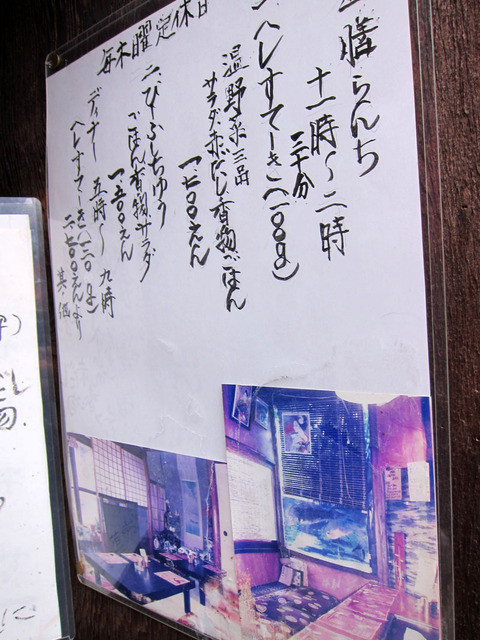 膳らんち
十一時〜二時
三十分
一、へしすてーき(一〇〇g)
温野菜三品
サラダ、赤だし香物、ごはん
一七〇〇えん
二、びーふしちゅう
ごはん香物、サラダ
一、五〇〇えん
ディナー 五時〜九時
へしすてーき(一二〇g)
二、七〇〇えんより
其の他
毎木曜定休日